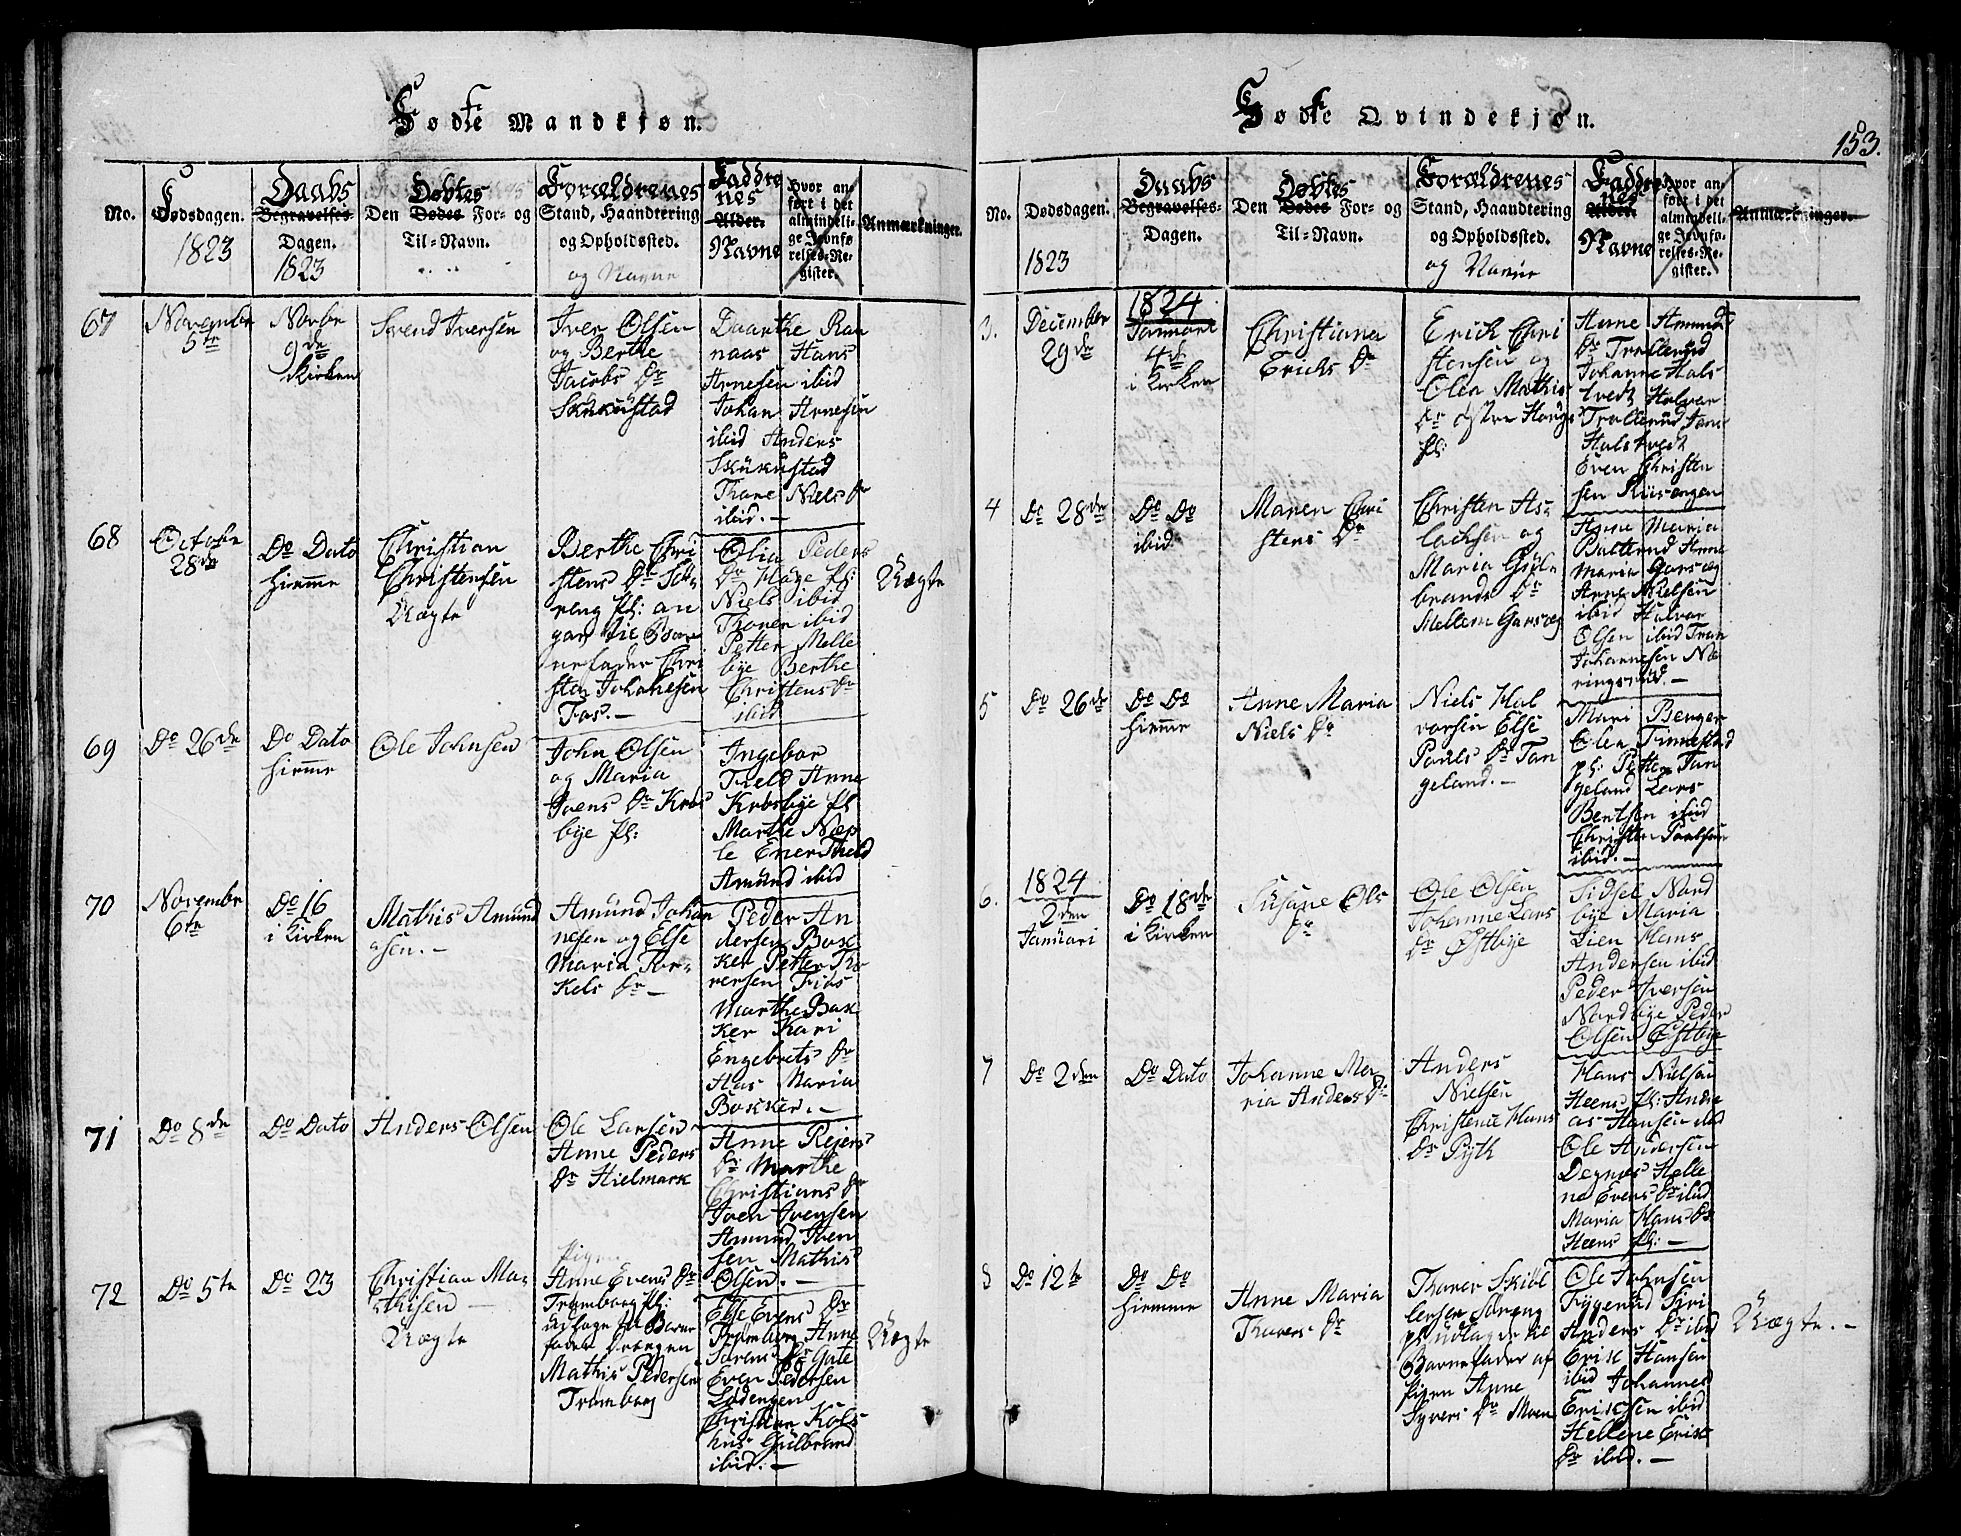 Fødte Mandkjøn.
No.
Fødsdagen.
1823
Daabs
Begravelses-
Dagen.
1823
Døbtes
Den Dødes For- og
Til-Navn.
Forældrenes
Stand, Haandtering
og Opholdssted.
og Navne
Faddre
nes
Alder.
Navne
Hvor an-
ført i det
almindeli-
ge Jevnfø
relses-Re-
gister.
Anmærkninger.
67
Novembr
5te
Novbr
9de
Kirken
Svend Iversen
Iver Olsen
og Berthe
Jacobs Dr
Skukustad
Daarthe Ran
naas Hans
Arnesen ibid
Johan Arnesen
ibid Anders
Skukustad
Thore Niels Dr
ibid. –
68
Octobr
28de
Do Dato
hiemme
Christian
Christensen
Uægte
Berthe Chri
stens Dr Sø-
reng pl: an
gav til Barn
efader Chri
sten Johanesen
Fos. –
Olia Peders
Dr Hage pl:
Niels ibid
Thoren ibid
Petter Melle
bye Berthe
Christens Dr
ibid
Uægte
69
Do 26de
Do Dato
hiemme
Ole Johnsen
John Olsen
og Maria
Ivens Dr Krøs
bye pl:
Ingebor
Tveld Anne
Krosbye pl
Marthe Næp
le Ener Thveld
Amund ibid
70
Novembr
6te
Do 16
i Kirken
Mathis Amund
osen. –
Amund Johan
nesen og Else
Maria Tor-
kels Dr –
Peder An
dersen Bax
ker Petter Tho
rersen Friis
Marthe Bax
ker Kari
Engebrets Dr
Aas Maria
Baxker. –
71
Do 8de
Do Dato
Anders Olsen
Ole Larsen
Anne Peders
Dr Hielmark
Anne Rejers
Dr: Marthe
Christians Dr
Iven Ivensen
Amund Iven
sen Mathis
Olsen. –
72
Do 5te
Do 23
Christian Ma-
thisen –
Uægte
Pigen
Anne Evens Dr
Tromborg pl:
udlagde til Barne
fader Drengen
Mathis Pedersen
Tromborg
Else Evens Dr
Tromborg Anne
Sørens Dr Gute
Even Pedersen
Lødengen
Christian Kols
hus Gulbrand
ibid. –
Uægte
Fødte Qvindekjøn.
153.
No.
Dødsdagen.
1823
Daabs
Begravelses-
Dagen.
Døbtes
Den Dødes For- og
Til-Navn.
Forældrenes
Stand, Haandtering
og Opholdssted.
og Navne
Faddre
nes
Alder.
Navne
Hvor an-
ført i det
almindeli-
ge Jevnfø-
relses-Re-
gister.
Anmærkninger.
3.
December
29de
1824
Januari
4de
i Kirken
Christiana
Erichs Dr
Erich Chri
stensen og
Olea Mathis
Dr østre Haugs
pl:
Anne Amunds
Dr Trollerud
Johanne Hals
tvedt Halvor
Trollerud Jans
Halstvedt
Even Christen
sen Riisengen
4
Do 28de
Do Do
ibid
Maren Chri
stens Dr
Christen As-
lachsen og
Maria Gul-
brands Dr
Mellem Garseg
Anne Maria
Ballerud Anne
Maria Garseg
Arne Nielsen
ibid Halvor
Olsen ibid Tron
Johannesen Næ
ringsrud. –
5
Do 26de
Do Do
hiemme
Anne Maria
Niels Dr
Niels Hal
vorsen Else
Pauls Dr Tan
geland. –
Mari Benger
Olea Finnestad
pl: Petter Tan
geland Lars
Bentsen ibid
Christen Paalsen
ibid. –
6.
1824
2den
Januari
Do 18de
i Kirken
Susane Ols
Dr
Ole Olsen
Johanne Lars
Dr Østbye
Sidsel Nord
bye Maria
Lien Hans
Andersen ibid
Peder Iversen
Nordbye Peder
Olsen Østbye
7
Do 2den
Do Dato
Johanne Ma-
ria Anders Dr:
Anders
Nielsen
Christence Hans
Dr Pyth
Hans Nielsen
Heens pl: Andre
as Hansen ibid
Ole Andersen
Degnæs Helle
ne Evens Dr ibid
Maria Hans Dr
Heens pl: –
8
Do 12te
Do Do
hiemme
Anne Maria
Thorers Dr
Thorer Skibl
lersen Søreng
pl: udlagde til
Barnefader af
pigen Anne
Syvers Dr Moen
Ole Johnsen
Frygerud Siri
Anders Dr ibid
Erik Hansen
ibid Johannes
Eriksen ibid
Hellene Eriks
Dr ibid. –
Uægte. –